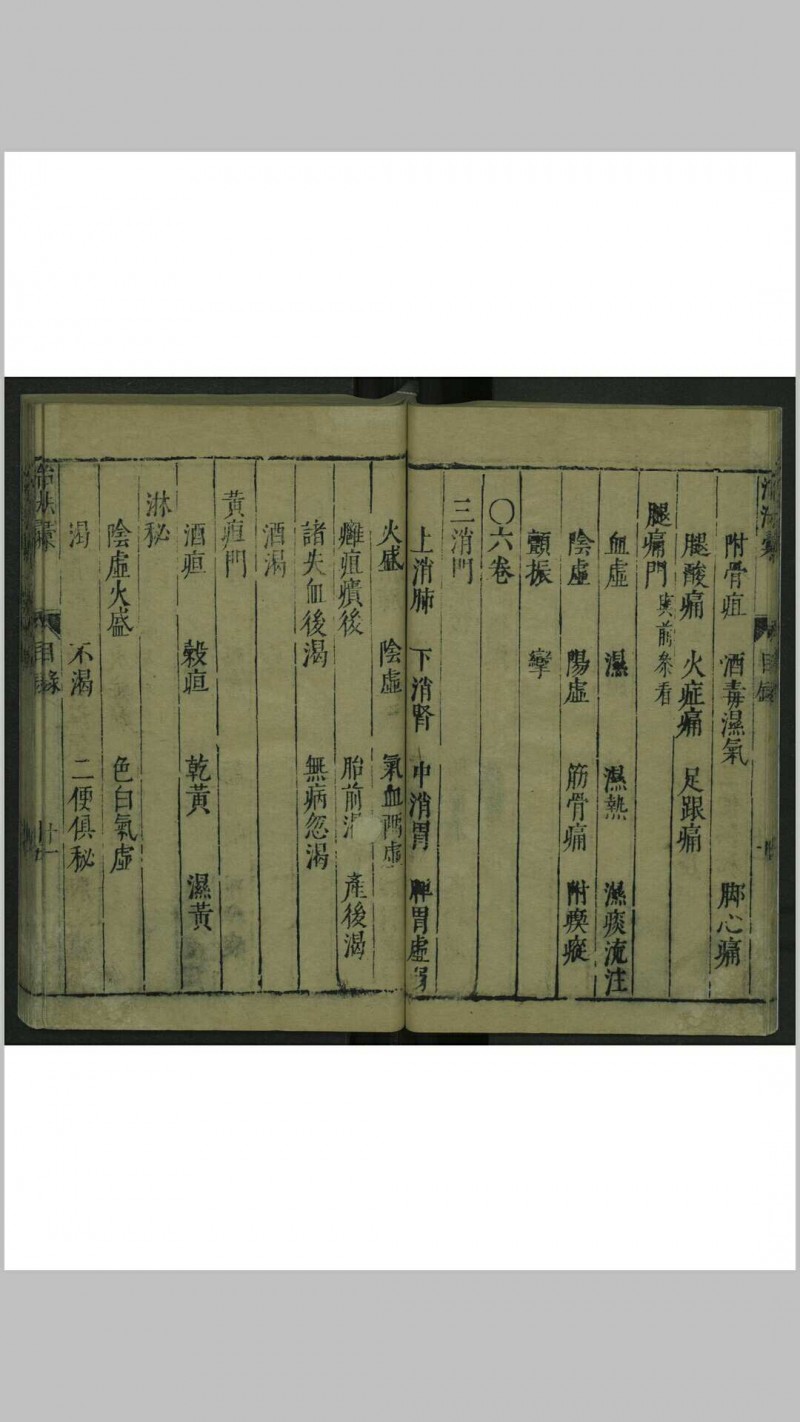 附骨疽　酒毒濕氣　脚心痛
腿酸痛　火症痛　足跟痛
腿痛門 與前叅看
血虛　濕　濕熱　濕痰流注
陰虛　陽虛　筋骨痛　附瘈瘲
顫振　攣
〇六卷
三消門
上消肺　下消腎　中消胃　脾胃虛
火盛　陰虛　氣血兩虛
癰疽癀後　胎前渴　產後渴
諸失血後渴　無病忽渴
酒渴
黃疸門
酒疸　穀疸　乾黃　濕黃
淋秘
陰虛火盛　色白氣虛
渴　不渴　二便俱秘
目錄